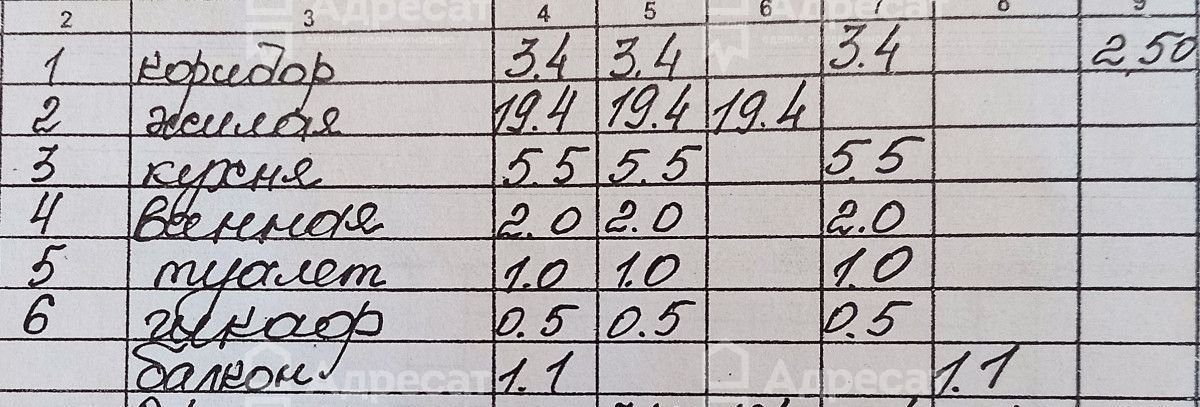 2 3 4 5 6 7 8 9
1 коридор 3.4 3.4 3.4 2,50
2 жилая 19.4 19.4 19.4
3 кухня 5.5 5.5 5.5
4 ванная 2.0 2.0 2.0
5 туалет 1.0 1.0 1.0
6 шкаф 0.5 0.5 0.5
балкон 1.1 1.1
Адресат
Адресат